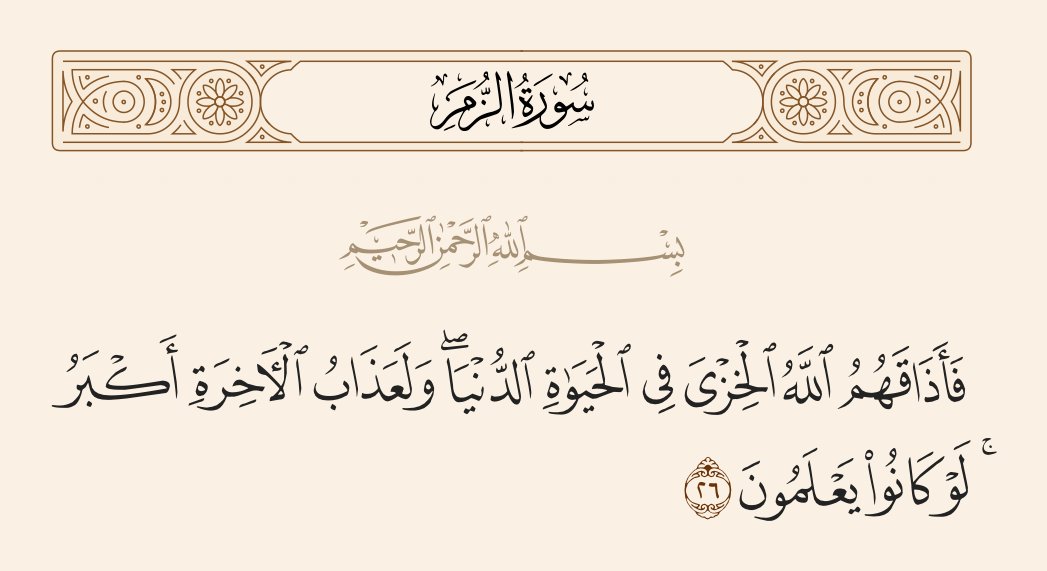 سُورَةُ الزُّمَرِ
بِسْمِ ٱللَّهِ ٱلرَّحْمَٰنِ ٱلرَّحِيمِ
فَأَذَاقَهُمُ ٱللَّهُ ٱلْخِزْىَ فِى ٱلْحَيَوٰةِ ٱلدُّنْيَا ۖ وَلَعَذَابُ ٱلْـَٔاخِرَةِ أَكْبَرُ ۚ
لَوْ كَانُوا۟ يَعْلَمُونَ ٢٦